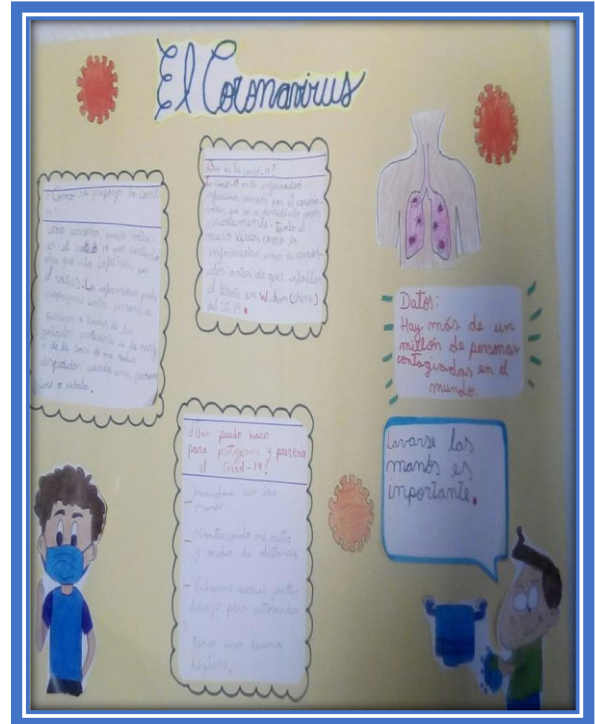 El Coronavirus
¿Como se propaga la covid
19?
una persona puede contra
er el covid 19 por contacto
otra que este infectada por
el virus). La enfermedad puede
propagarse entre persona a
persona a traves de las
procedentes de la nariz
o de la boca
despedidas cuando una persona
tose o exhala.
¿Que es la covid-19?
La covid-19 es la enfermedad
infecciosa causada por el corona-
virus que se a descubierto más
recientemente. Tanto el
nuevo virus como la
enfermedad eran desconos-
idos antes de que estallara
el brote en Wuhan (china)
del 2019.
Datos:
Hay más de un
millón de personas
contagiadas en el
mundo.
¿Que puedo hacer
para protegerme y prevenir
el Covid-19?
- lavandome bien las
manos.
- Manteniendo mi metro
y medio de distancia
-
para estornudar
Tener una buena
higiene.
Lavarse las
manos es
inportante.